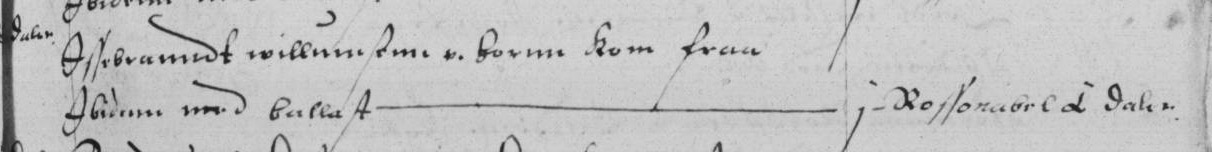 daler
Issebranndt willumsenn v. hornn kom fraa
Ibidem med ballast j Rossenabel & daler